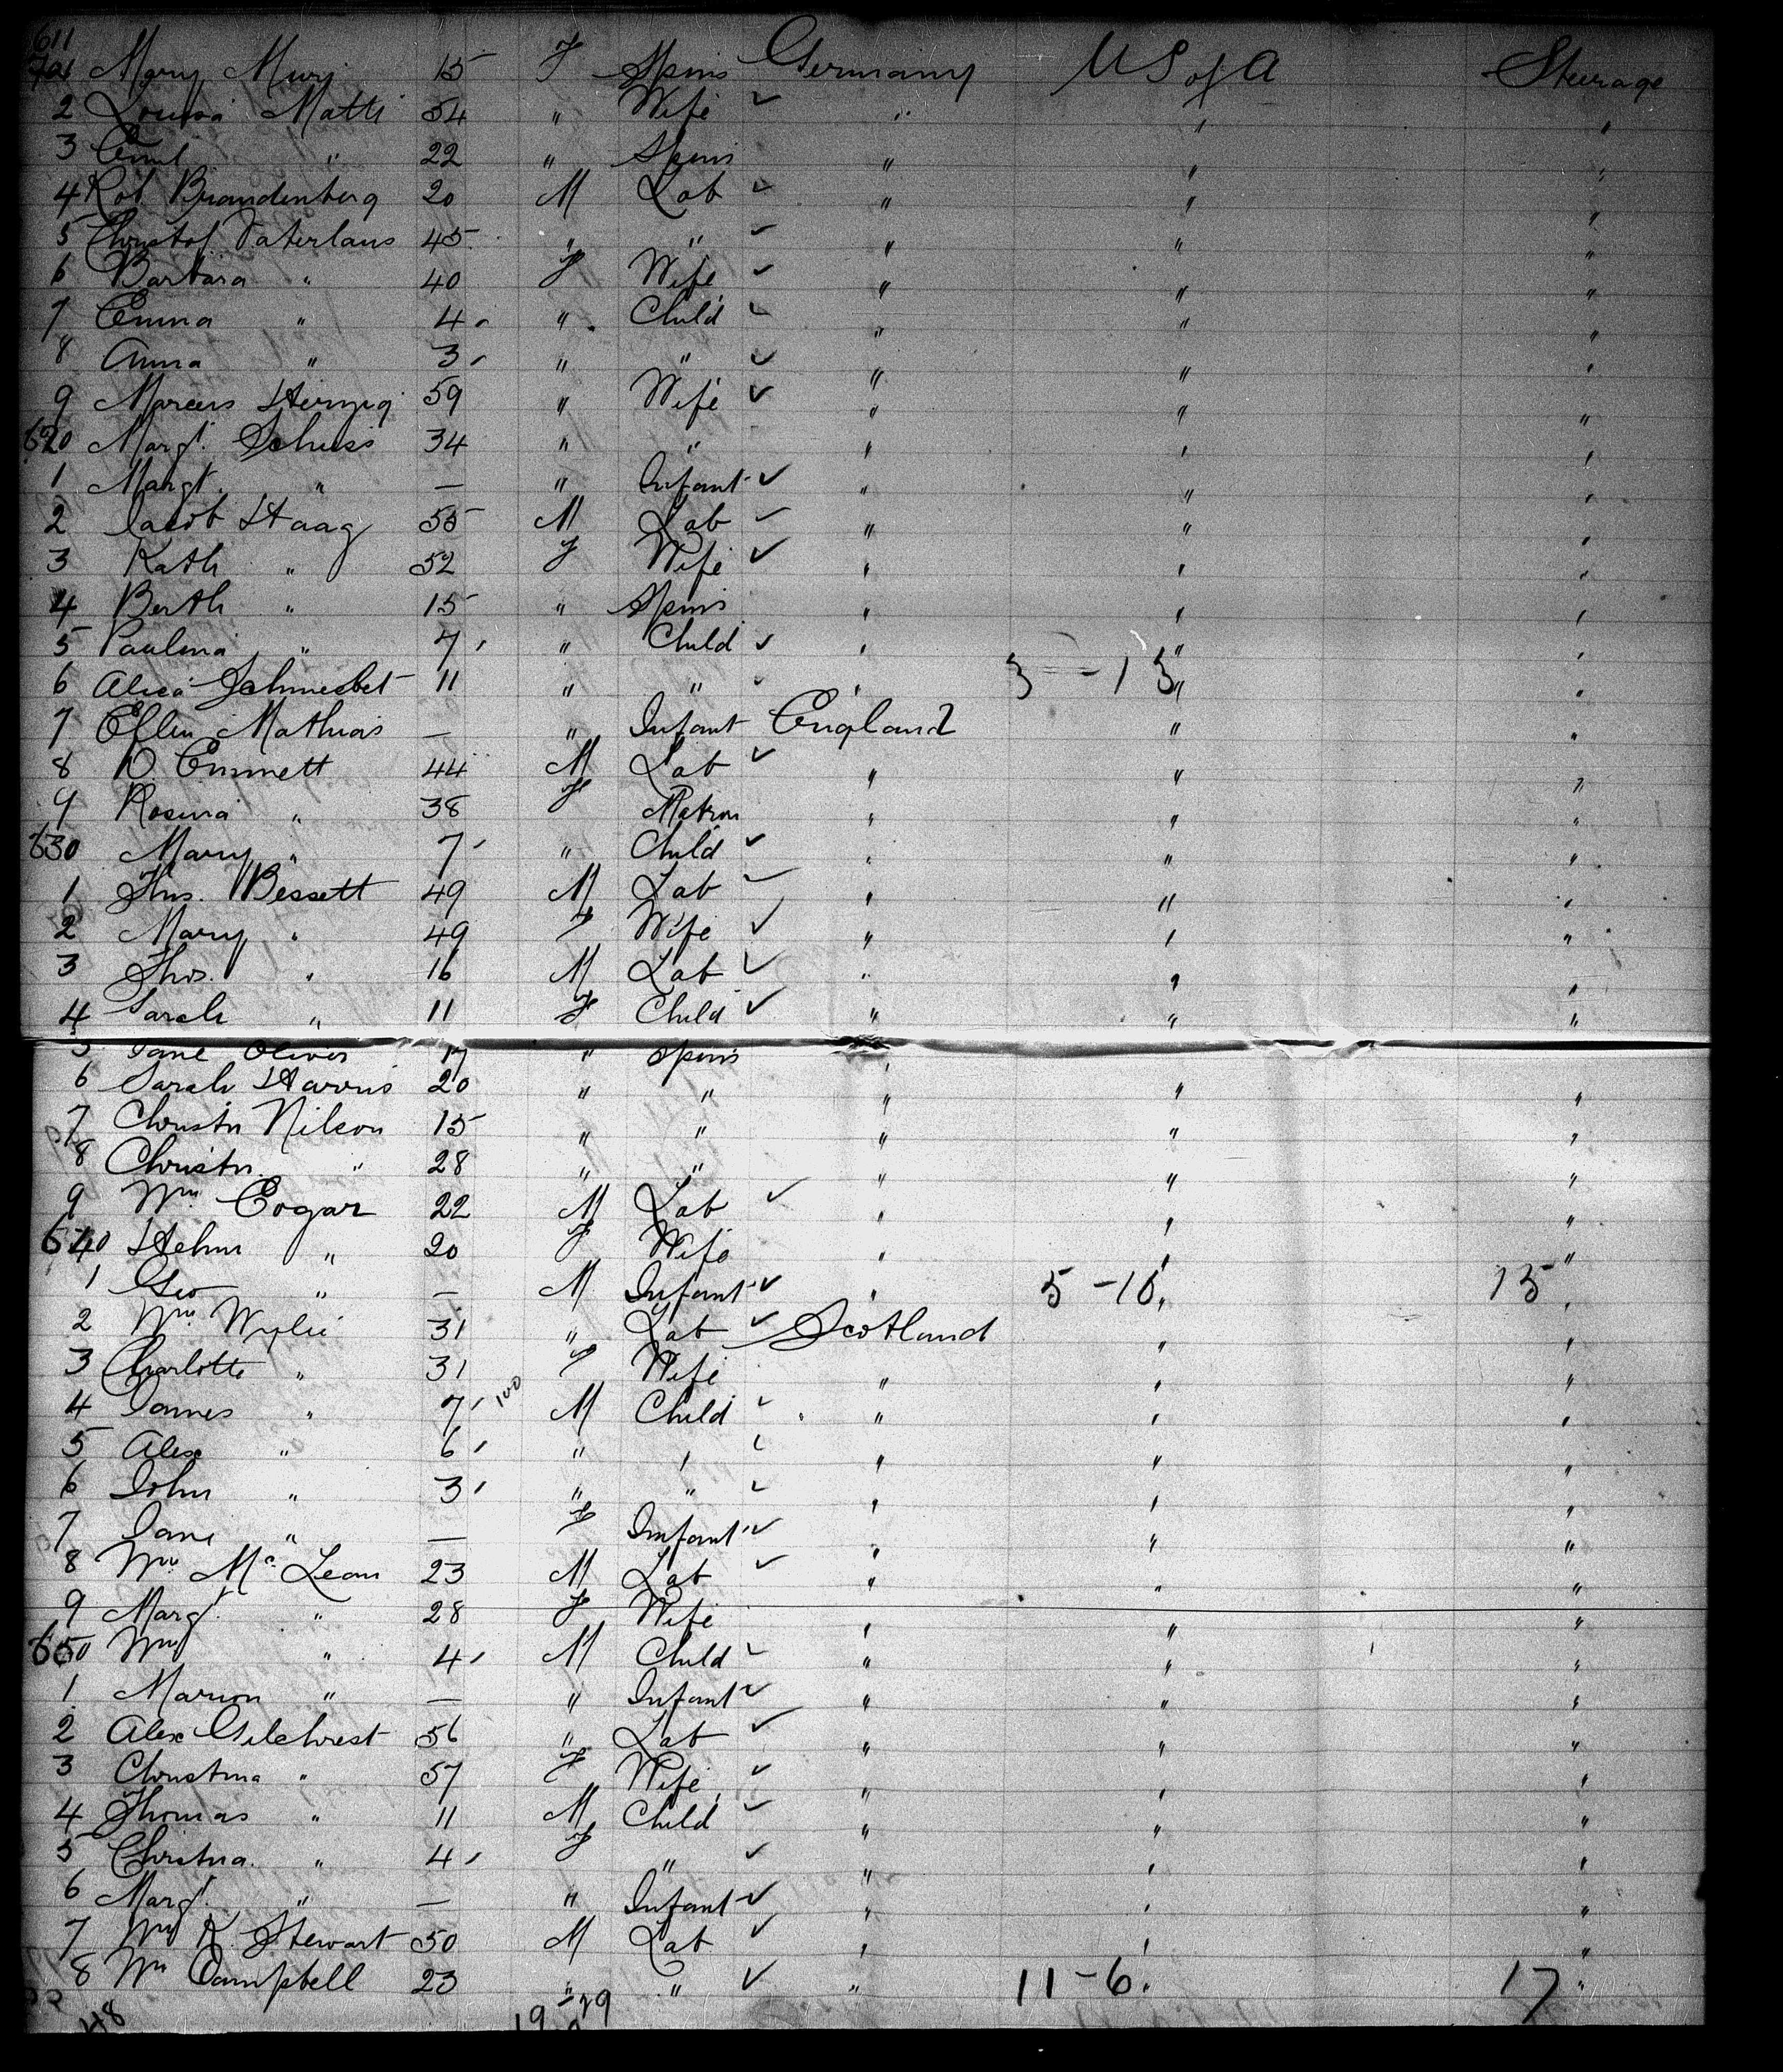 611
701 Mary Murj 15 F Spins Germany U S of A Steerage
2 Louisa Matti 54 " Wife ✓ " " "
3 Emil " 22 " Spins " " "
4 Rob Brandenberg 20 M Lab ✓ " " "
5 Christof Vaterlaus 45 " " ✓ " " "
6 Barbara " 40 F Wife ✓ " " "
7 Emma " 4 " Child ✓ " " "
8 Anna " 3 " " ✓ " " "
9 Marcus Herzig 59 " Wife ✓ " " "
620 Margt. Schuss 34 " " " " "
1 Margt. " — " Infant ✓ " " "
2 Jacob Haag 55 M Lab ✓ " " "
3 Kath " 52 F Wife ✓ " " "
4 Berth " 15 " Spins " " "
5 Paulina " 7 " Child ✓ " " "
6 Alica 11 " " ✓ " 3 - 13 " "
7 Mathias — " Infant England " "
8 D. Emmett 44 M Lab ✓ " " "
9 Rosina " 38 F Matron " " "
630 Mary " 7 " Child ✓ " " "
1 Thos. Bessett 49 M Lab ✓ " " "
2 Mary " 49 F Wife ✓ " " "
3 Thos. " 16 M Lab ✓ " " "
4 Sarah " 11 F Child ✓ " " "
5 Jane Oliver 17 " Spins "
6 Sarah Harris 20 " " " " "
7 Christn Nilson 15 " " " " "
8 Christn " 28 " " " " "
9 Wm Cogar 22 M Lab ✓ " " "
640 Helen " 20 F Wife " " "
1 Geo " — M Infant ✓ " 5 - 10 " 15 "
2 Wm Wylie 31 " Lab ✓ Scotland " "
3 Charlotte " 31 F Wife " " "
4 James " 7 100 M Child ✓ " " "
5 Alex " 6 " " ✓ " " "
6 John " 3 " " ✓ " " "
7 Jane " — F Infant ✓ " " "
8 Wm McLean 23 M Lab ✓ " " "
9 Margt. " 28 F Wife " " "
650 Wm " 4 M Child ✓ " " "
1 Marion " — " Infant ✓ " " "
2 Alex Gilchrest 56 " Lab ✓ " " "
3 Christina " 57 F Wife ✓ " " "
4 Thomas " 11 M Child ✓ " " "
5 Christina " 4 F " ✓ " " "
6 Margt. " — " Infant ✓ " " "
7 Wm K. Stewart 50 M Lab ✓ " " "
8 Wm Campbell 23 " " ✓ " 11 - 6 " 17 "
48 19 - 29